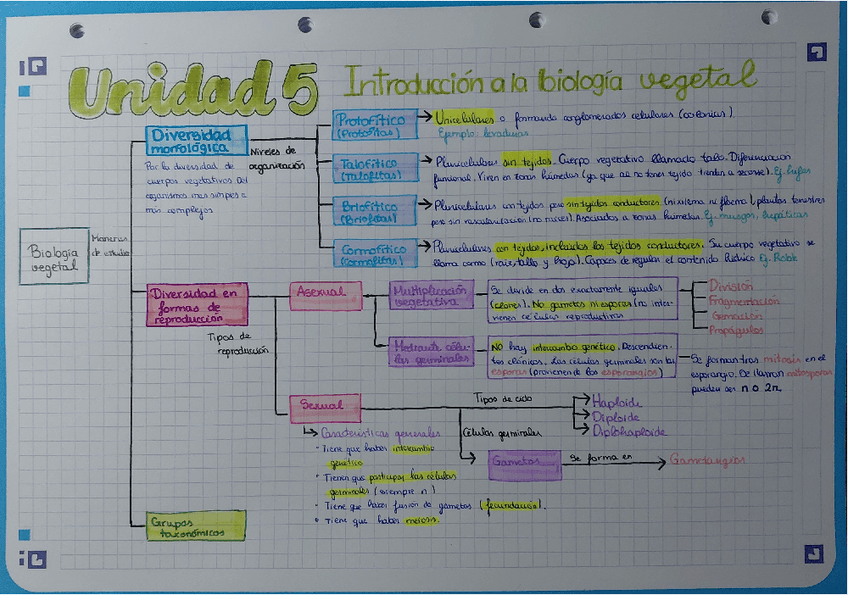 Unidad 5 Introducción a la biología vegetal
Biología
vegetal
Maneras
de estudio
Diversidad
morfológica
Por la diversidad de
cuerpos vegetativos. Del
organismo más simple a
más complejos
Niveles de
organización
Protofítico
(Protofitas)
Unicelulares o formando conglomerados celulares (colonias)
Ejemplo: levaduras
Talofítico
(Talofitas)
Pluricelulares sin tejidos. Cuerpo vegetativo llamado talo. Diferenciación
funcional. Viven en zonas húmedas (ya que al no tener tejido tienden a secarse). Ej. algas
Briofítico
(Briofitas)
Pluricelulares con tejidos pero sin tejidos conductores (ni xilema ni floema), plantas terrestres
pero sin vascularización (no raíces). Asociados a zonas húmedas. Ej. musgos, hepáticas
Cormofítico
(Cormofitas)
Pluricelulares con tejidos, incluidos los tejidos conductores. Su cuerpo vegetativo se
llama cormo (raíz, tallo y hoja). Capaces de regular el contenido hídrico Ej. Roble
Diversidad en
formas de
reproducción
Tipos de
reproducción
Asexual
Multiplicación
vegetativa
Se divide en dos exactamente iguales
(clones). No gametos ni esporas (no inter-
vienen células reproductivas
División
Fragmentación
Gemación
Propágulos
Mediante célu-
las germinales
NO hay intercambio genético. Descendien-
tes clónicos. Las células germinales son las
esporas (provienen de los esporangios)
Se forman tras mitosis en el
esporangio. Se llaman mitosporas
pueden ser n o 2n.
Sexual
Tipos de ciclo
Haploide
Diploide
Diplohaploide
Células germinales
Gametos
Se forma en
Gametangios
Características generales
- Tiene que haber intercambio
genético
- Tienen que participar las células
germinales (siempre n)
- Tiene que haber fusión de gametos (fecundación).
- Tiene que haber meiosis.
Grupos
taxonómicos